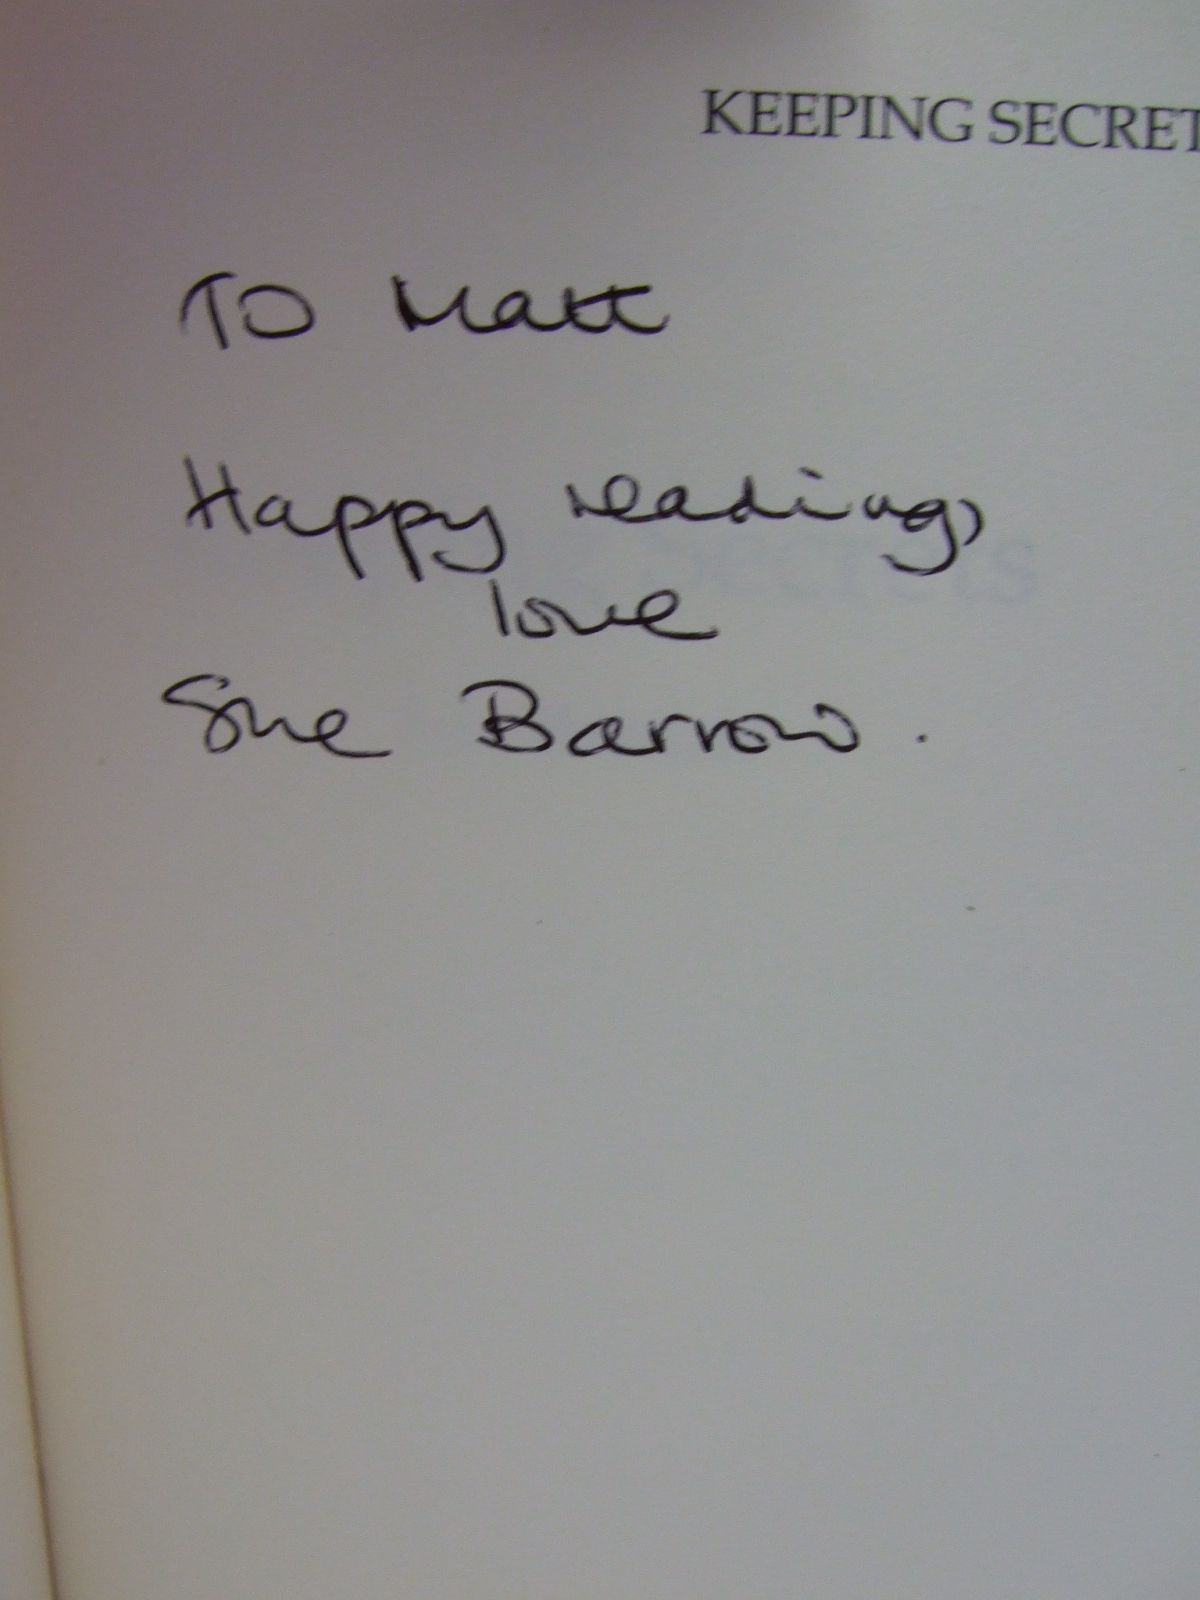 KEEPING SECRET
To Matt
Happy reading,
love
Sue Barrow.